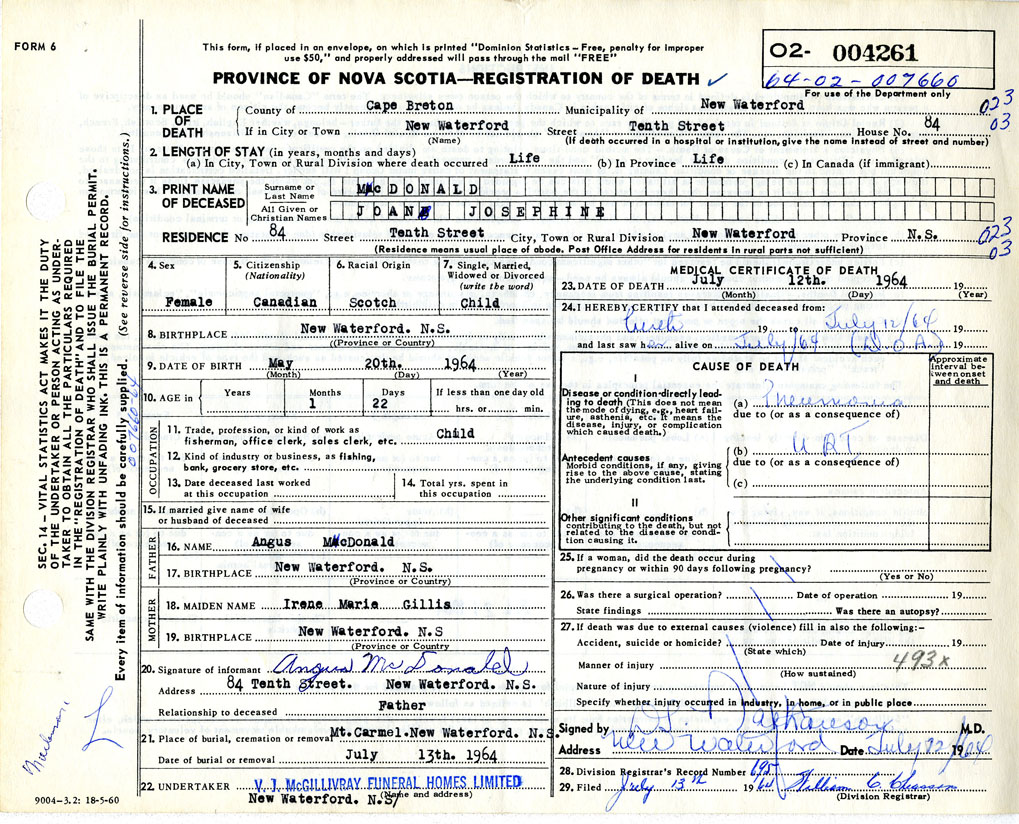 FORM 6
This form, if placed in an envelope, on which is printed "Dominion Statistics – Free, penalty for improper
use $50," and properly addressed will pass through the mail "FREE"
PROVINCE OF NOVA SCOTIA—REGISTRATION OF DEATH ✓
02- 004261
64-02-007660
For use of the Department only
1. PLACE OF DEATH
County of Cape Breton Municipality of New Waterford
023
03
If in City or Town New Waterford Street Tenth Street House No. 84
(Name) (If death occurred in a hospital or institution, give the name instead of street and number)
2. LENGTH OF STAY (in years, months and days)
(a) In City, Town or Rural Division where death occurred Life (b) In Province Life (c) In Canada (if immigrant)
3. PRINT NAME OF DECEASED
Surname or Last Name McDONALD
All Given or Christian Names JOAN JOSEPHINE
RESIDENCE No 84 Street Tenth Street City, Town or Rural Division New Waterford Province N.S.
023
03
(Residence means usual place of abode. Post Office Address for residents in rural parts not sufficient)
4. Sex
Female
5. Citizenship
(Nationality)
Canadian
6. Racial Origin
Scotch
7. Single, Married,
Widowed or Divorced
(write the word)
Child
8. BIRTHPLACE New Waterford. N.S.
(Province or Country)
9. DATE OF BIRTH May 20th. 1964
(Month) (Day) (Year)
10. AGE in Years Months Days If less than one day old
1 22 hrs. or min.
OCCUPATION
11. Trade, profession, or kind of work as
fisherman, office clerk, sales clerk, etc. Child
12. Kind of industry or business, as fishing,
bank, grocery store, etc.
13. Date deceased last worked
at this occupation
14. Total yrs. spent in
this occupation
15. If married give name of wife
or husband of deceased
FATHER
16. NAME Angus McDonald
17. BIRTHPLACE New Waterford. N.S.
(Province or Country)
MOTHER
18. MAIDEN NAME Irene Marie Gillis
19. BIRTHPLACE New Waterford. N.S
(Province or Country
20. Signature of informant Angus McDonald
Address 84 Tenth Street. New Waterford. N.S.
Relationship to deceased Father
21. Place of burial, cremation or removal Mt.Carmel.New Waterford. N.S.
Date of burial or removal July 13th. 1964
22. UNDERTAKER V. J. McGILLIVRAY FUNERAL HOMES LIMITED
(Name and address)
New Waterford. N.S/
MEDICAL CERTIFICATE OF DEATH
23. DATE OF DEATH July 12th. 1964 19
(Month) (Day) (Year)
24. I HEREBY CERTIFY that I attended deceased from:
19 to July 12/64 19
and last saw her alive on July/64 (D.O.A.) 19
CAUSE OF DEATH
Approximate
interval be-
tween onset
and death
I
Disease or condition directly lead-
ing to death (This does not mean
the mode of dying, e.g., heart fail-
ure, asthenia, etc. It means the
disease, injury, or complication
which caused death.)
(a) Pneumonia
due to (or as a consequence of)
Antecedent causes
Morbid conditions, if any, giving
rise to the above cause, stating
the underlying condition last.
(b) URT
due to (or as a consequence of)
(c)
II
Other significant conditions
contributing to the death, but not
related to the disease or condi-
tion causing it.
25. If a woman, did the death occur during
pregnancy or within 90 days following pregnancy?
(Yes or No)
26. Was there a surgical operation? Date of operation 19
State findings Was there an autopsy?
27. If death was due to external causes (violence) fill in also the following:–
Accident, suicide or homicide? Date of injury 19
(State which)
Manner of injury 493x
(How sustained)
Nature of injury
Specify whether injury occurred in industry, in home, or in public place
Signed by M.D.
Address New Waterford Date July 12 1964
28. Division Registrar's Record Number 695
29. Filed July 13th 1964 William C Chiasson
(Division Registrar)
SEC. 14 – VITAL STATISTICS ACT MAKES IT THE DUTY
OF THE UNDERTAKER OR PERSON ACTING AS UNDER-
TAKER TO OBTAIN ALL THE PARTICULARS REQUIRED
IN THE "REGISTRATION OF DEATH" AND TO FILE THE
SAME WITH THE DIVISION REGISTRAR WHO SHALL ISSUE THE BURIAL PERMIT.
WRITE PLAINLY WITH UNFADING INK. THIS IS A PERMANENT RECORD.
Every item of information should be carefully supplied. (See reverse side for instructions.)
007660-64
L
9004-3.2: 18-5-60